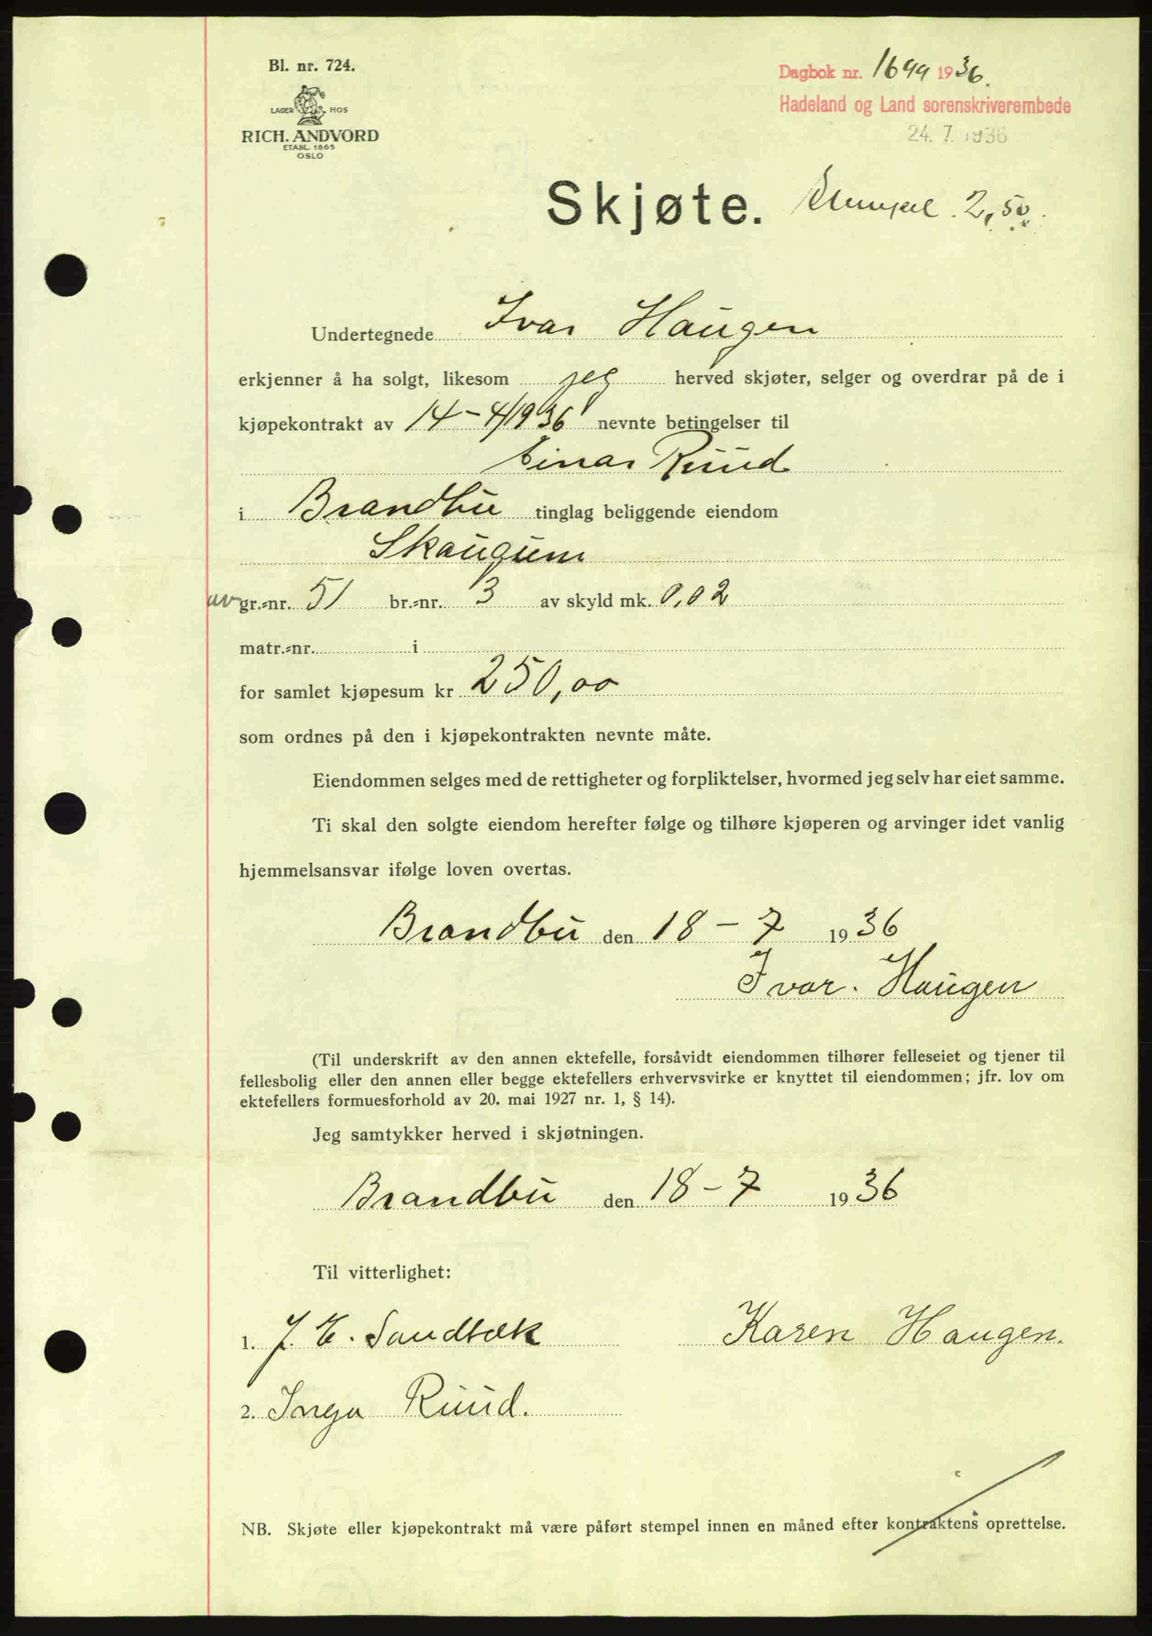 Bl. nr. 724.
LAGER HOS
RICH. ANDVORD
ETABL. 1865
OSLO
Dagbok nr. 1699 1936.
Hadeland og Land sorenskriverembede
24. 7. 1936
Skjøte. Stempel. 2,50.
Undertegnede Ivar Haugen
erkjenner å ha solgt, likesom jeg herved skjøter, selger og overdrar på de i
kjøpekontrakt av 14-4/1936 nevnte betingelser til
Einar Ruud
i Brandbu tinglag beliggende eiendom
Skaugum
av gr.-nr. 51 br.-nr. 3 av skyld mk. 0,02
matr.-nr. i
for samlet kjøpesum kr 250,00
som ordnes på den i kjøpekontrakten nevnte måte.
Eiendommen selges med de rettigheter og forpliktelser, hvormed jeg selv har eiet samme.
Ti skal den solgte eiendom herefter følge og tilhøre kjøperen og arvinger idet vanlig
hjemmelsansvar ifølge loven overtas.
Brandbu den 18-7 1936
Ivar. Haugen
(Til underskrift av den annen ektefelle, forsåvidt eiendommen tilhører felleseiet og tjener til
fellesbolig eller den annen eller begge ektefellers erhvervsvirke er knyttet til eiendommen; jfr. lov om
ektefellers formuesforhold av 20. mai 1927 nr. 1, § 14).
Jeg samtykker herved i skjøtningen.
Brandbu den 18-7 1936
Til vitterlighet:
1. J. E. Sandbæk Karen Haugen.
2. Inga Ruud.
NB. Skjøte eller kjøpekontrakt må være påført stempel innen en måned efter kontraktens oprettelse.